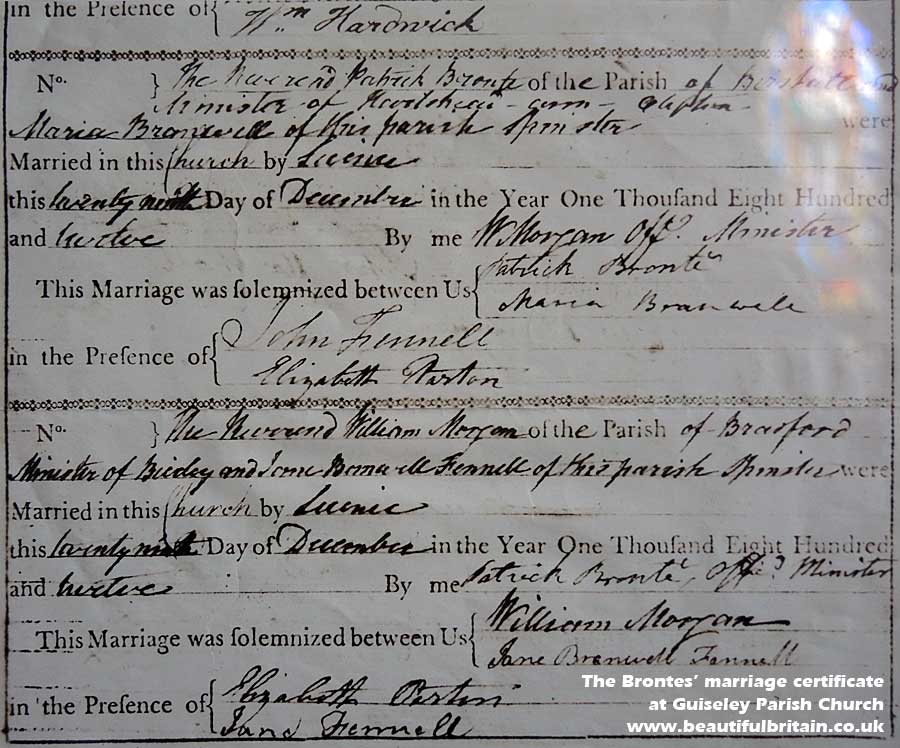 in the Preſence of {
Wm Hardwick
No. } The Reverend Patrick Bronte of the Parish of Birstall and
Minister of Hartshead - cum - Clifton
Maria Branwell of this parish Spinster were
Married in this Church by Licence
this twenty ninth Day of December in the Year One Thouſand Eight Hundred
and twelve By me W Morgan Offg. Minister
This Marriage was ſolemnized between Us { Patrick Brontē
Maria Branwell
in the Preſence of { John Fennell
Elizabeth Parton
No. } The Reverend William Morgan of the Parish of Bradford
Minister of Bierley and Jane Branwell Fennell of this parish Spinster were
Married in this Church by Licence
this twenty ninth Day of December in the Year One Thouſand Eight Hundred
and twelve By me Patrick Brontē, Offg. Minister
This Marriage was ſolemnized between Us { William Morgan
Jane Branwell Fennell
in the Preſence of { Elizabeth Parton
Jane Fennell
The Brontes' marriage certificate
at Guiseley Parish Church
www.beautifulbritain.co.uk